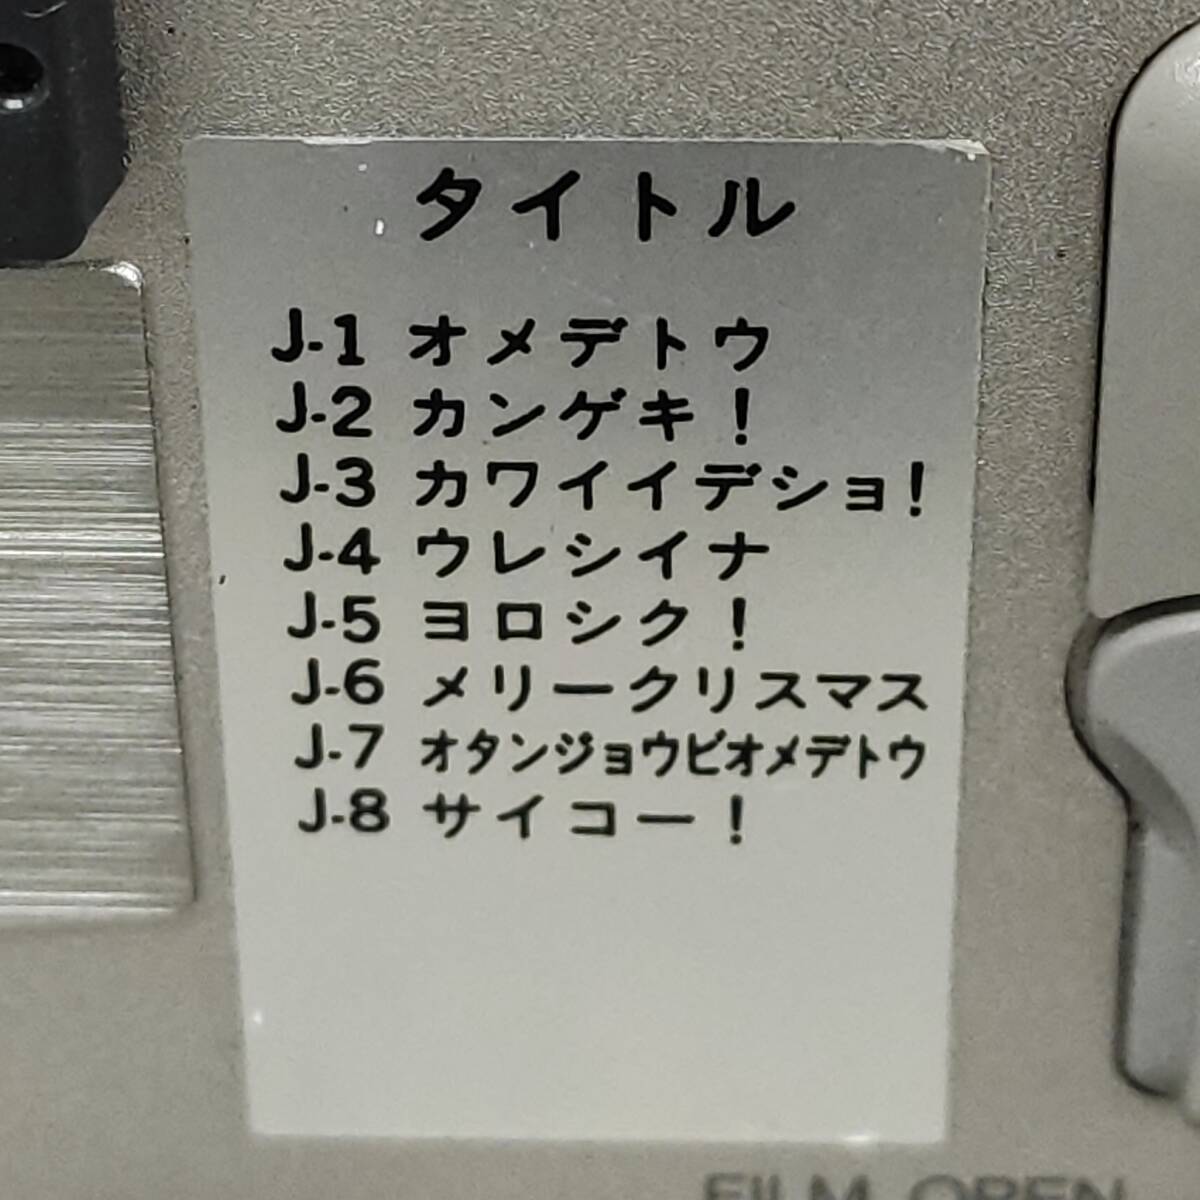 タイトル
J-1 オメデトウ
J-2 カンゲキ！
J-3 カワイイデショ！
J-4 ウレシイナ
J-5 ヨロシク！
J-6 メリークリスマス
J-7 オタンジョウビオメデトウ
J-8 サイコー！
FILM OPEN